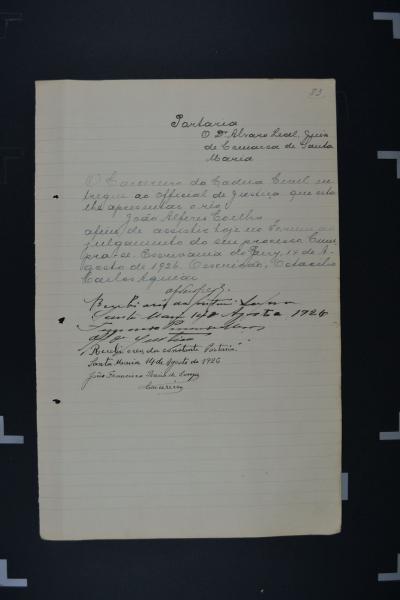 83.
Portaria
O Dr Alvaro Leal, Juiz
de Comarca de Santa
Maria
O Carcereiro da Cadeia Civil en
tregue ao Official de Justiça que esta
lhe apresentar o réo
João Alferes Coelho
afim de assistir hoje no Forum ao
julgamento do seu processo. Cum
pra-se. Escrivania do Jury, 14 de A-
gosto de 1926. O escrivão, Octacilio
Carlos Aguiar
Recebi
Santa Maria 14 de Agosto 1926
Of de Justiça
Recebi o réu da constante Portaria
Santa Maria 14 de Agosto de 1926
João Francisco de Souza
Carcereiro